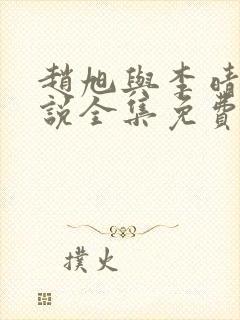 趙旭與李晴
說全集免費
撲火